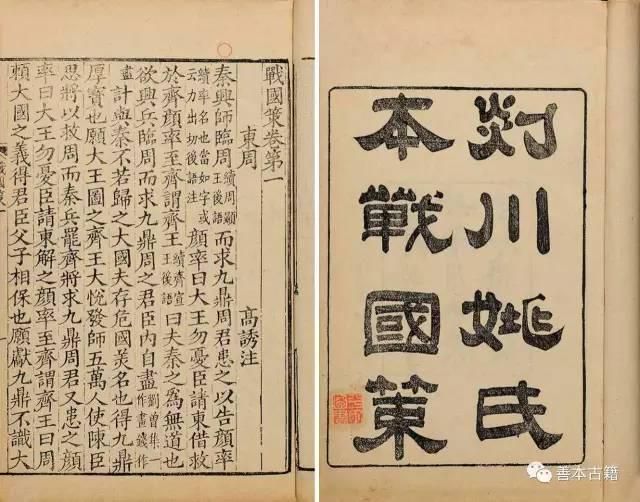 剡川姚氏
本戰國策
戰國策卷第一
東周 高誘注
秦興師臨周續周顯王後語而求九鼎周君患之以告顏率
續率名也當如字或云力出切後語注顏率曰大王勿憂臣請東借救
於齊顏率至齊謂齊王續齊宣王後語曰夫秦之爲無道也
欲興兵臨周而求九鼎周之君臣內自盡劉曾集一作畫錢作
盡計與秦不若歸之大國夫存危國美名也得九鼎
厚寶也願大王圖之齊王大悅發師五萬人使陳臣
思將以救周而秦兵罷齊將求九鼎周君又患之顏
率曰大王勿憂臣請東解之顏率至齊謂齊王曰周
賴大國之義得君臣父子相保也願獻九鼎不識大
善本古籍